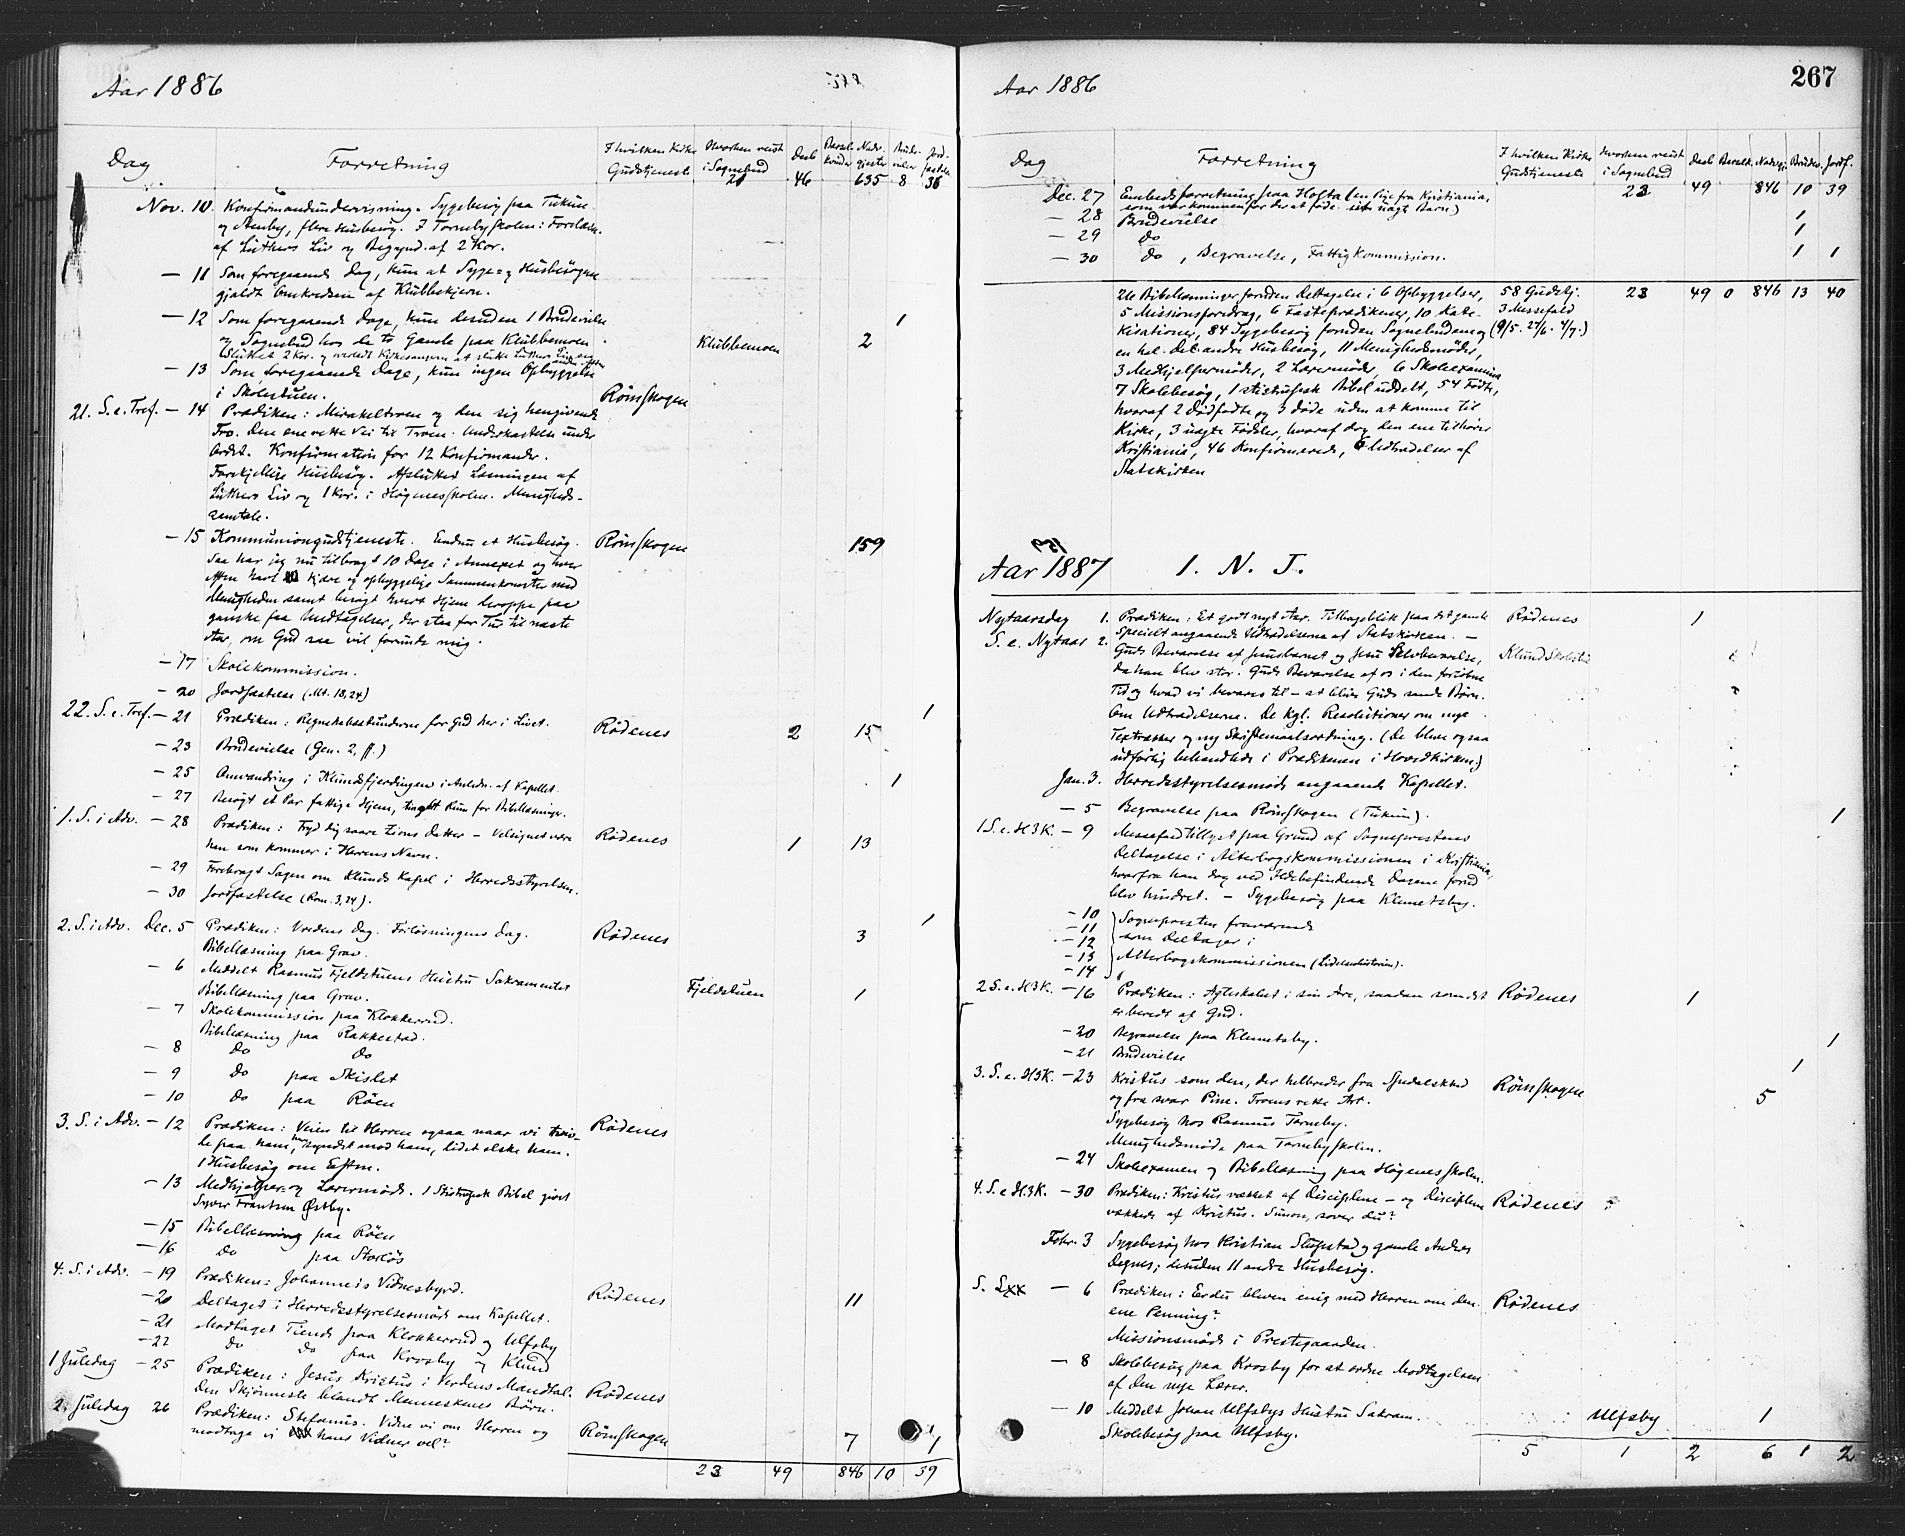 Aar 1886
Dag Forretning I hvilken Kirke Gudstjeneste Hvorhen reist i Sognebud Daab Nadv.gjester
21 46 635 8 36
Nov. 10. Konfirmandundervisning. Sygebesøg paa Tukun
og flere Husbesøg. I Tørnebyskolen: Forelæsn.
af Luthers Liv og Begynd. af 2 Kor.
— 11 Som foregaaende Dag, kun at Syge- og Husbesøgene
gjaldt Omkredsen af Klubbekjern.
— 12 Som foregaaende Dage, kun desuden 1 Brudevielse 1
og Sognebud hos de to Gamle paa Klubbemoen. Klubbemoen 2
Sluttet 2 Kor. og
— 13 Som foregaaende Dage, kun ingen Opbyggelse
i Skolestuen.
21. S. e. Tref. — 14 Prædiken: Mirakeltroen og den sig hengivende Rømskogen
Tro. Den ene rette Vei til Troen. Underkastelse under
Ordet. Konfirmation for 12 Konfirmander.
Forskjellige Husbesøg. Afsluttet Læsningen af
Luthers Liv og 1 Kor. i Høgnesskolen. Menigheds-
samtale.
— 15 Kommuniongudstjeneste. Endnu et Husbesøg. Rømskogen 159
Saa har jeg nu tilbragt 10 Dage i Annexet og hver
Aften havt kjære og opbyggelige Sammenkomster med
Menigheden samt besøgt hvert Hjem deroppe paa
ganske faa Undtagelser, der staa for Tur til næste
Aar, om Gud saa vil forunde mig.
— 17 Skolekommission.
— 20 Jordfæstelse (Mt. 18,24) 1
22. S. e. Tref. — 21 Prædiken: Regnskabsstunderne for Gud her i Livet. Rødenes 2 15
— 23 Brudevielse (Gen. 2, ff.) 1
— 25 Omvandring i Klundsfjerdingen i Anledn. af Kapellet.
— 27 Besøgt et Par fattige Hjem, tinget Rum for Bibellæsninger.
1. S. i Adv. — 28 Prædiken: Fryd dig saare Zions Datter – Velsignet være Rødenes 1 13
han som kommer i Herrens Navn.
— 29 Forebragt Sagen om Klunds Kapel i Herredsstyrelsen.
— 30 Jordfæstelse (Rom. 3,24). 1
2. S. i Adv. Dec. 5 Prædiken: Vredens Dag. Forløsningens Dag. Rødenes 3
Bibellæsning paa Grav.
— 6 Meddelt Rasmus Fjeldstuens Hustru Sakramentet Fjeldstuen 1
Bibellæsning paa Grav.
— 7 Skolekommission paa Klokkerud.
Bibellæsning paa Rakkestad.
— 8 Do Do
— 9 Do paa Skislet
— 10 Do paa Røen
3. S. i Adv. — 12 Prædiken: Veien til Herren ogsaa naar vi tviv- Rødenes
le paa ham, har syndet mod ham, lidet elske ham.
1 Husbesøg om Eftm.
— 13 Medhjelper- og Lærermøde. 1 Bibel givet
Syver Frantsen Østby.
— 15 Bibellæsning paa Røen
— 16 Do paa Storløs
4. S. i Adv. — 19 Prædiken: Johannes's Vidnesbyrd. Rødenes 11
— 20 Deltaget i Herredsstyrelsesmøde om Kapellet.
— 21 Modtaget Tiende paa Klokkerud og Ulfsby
— 22 Do Do paa Krosby og Klund
1 Juledag — 25 Prædiken: Jesus Kristus i Verdens Mandtal. Rødenes
Den Skjønneste blandt Menneskenes Børn.
2. Juledag 26 Prædiken: Stefanus. Vidne vi om Herren og Rømskogen 7 1
modtage vi hans Vidner vel?
23 49 846 10 39
Aar 1886 267
Dag Forretning I hvilken Kirke Gudstjeneste Hvorhen reist i Sognebud Daab Beretn. Nadvgj. Brudev. Jordf.
23 49 846 10 39
Dec. 27 Embedsforretning paa Hofta (en Pige fra Kristiania,
som var kommen for der at føde uægt Barn.)
— 28 Brudevielse 1
— 29 Do 1
— 30 Do, Begravelse, Fattigkommission. 1 1
26 Bibellæsninger foruden Deltagelse i 6 Opbyggelser, 58 Gudstj. 23 49 0 846 13 40
5 Missionsforedrag, 6 Fasteprædikener, 10 Kate- 3 Messefald
kisationer, 84 Sygebesøg foruden Sognebudene og (9/5. 27/6. 4/7.)
en hel Del andre Husbesøg, 11 Menighedsmøder,
3 Medhjelpermøder, 2 Lærermøder, 6 Skoleexamina
7 Skolebesøg, 1 Bibel uddelt, 54 Fødte,
hvoraf 2 dødfødte og 3 døde uden at komme til
Kirke, 3 uægte Fødsler, hvoraf dog den ene tilhører
Kristiania, 46 Konfirmerede, 6 Udtrædelser af
Statskirken
Aar 1887 I. N. J.
Nytaarsdag 1. Prædiken: Et godt nyt Aar. Tilbageblik paa det gamle Rødenes 1
Specielt angaaende Udtrædelserne af Statskirken. —
S. e. Nytaar 2. Guds Bevarelse af Jesusbarnet og Jesu Selvbevarelse, Klund
da han blev stor. Guds Bevarelse af os i den forløbne
Tid og hvad vi bevares til – at blive Guds sande Børn.
Om Udtrædelserne. De kgl. Resolutioner om nye
Textrækker og ny Skriftemaalsordning. (De bleve ogsaa
udførlig behandlede i Prædikenen i Hovedkirken)
Jan. 3. Herredsstyrelsesmøde angaaende Kapellet.
— 5 Begravelse paa Rømskogen (Tukun). 1
1 S. e. H3K. — 9 Messefald tillyst paa Grund af Sognepresten
Deltagelse i Alterbogskommissionen i Kristiania,
hvorfra han dog ved Ildebefindende Dagene forud
blev hindret. — Sygebesøg paa Klemetsby.
— 10 Sognepresten fraværende
— 11
— 12 som Deltager i
— 13 Alterbogskommissionen (Lidelseshistorien).
— 14
2 S. e. H3K. — 16 Prædiken: Ægteskabet i sin Ære, saadan som det Rødenes 1
er beredt af Gud.
— 20 Begravelse paa Klemetsby. 1
— 21 Brudevielse 1
3. S. e. H3K. — 23 Kristus som den, der helbreder fra Spedalskhed Rømskogen 5
og fra svar Pine. Troens rette Art.
Sygebesøg hos Rasmus Tørneby.
Menighedsmøde paa Tørnebyskolen.
— 24 Skoleexamen og Bibellæsning paa Høgnesskolen.
4. S. e H3K. — 30 Prædiken: Kristus vækket af Disciplene – og Disciplene Rødenes
vækkede af Kristus. Simon, sover du?
Febr. 3 Sygebesøg hos Kristian Slupstad og gamle Andres
Degnes; desuden 11 andre Husbesøg.
S. Lxx — 6 Prædiken: Er du bleven enig med Herren om den Rødenes
ene Penning?
Missionsmøde i Prestegaarden.
— 8 Skolebesøg paa Krosby for at ordne Modtagelsen
af den nye Lærer.
— 10 Meddelt Johan Ulfsbys Hustru Sakram. Ulfsby 1
Skolebesøg paa Ulfsby.
5 1 2 6 1 2